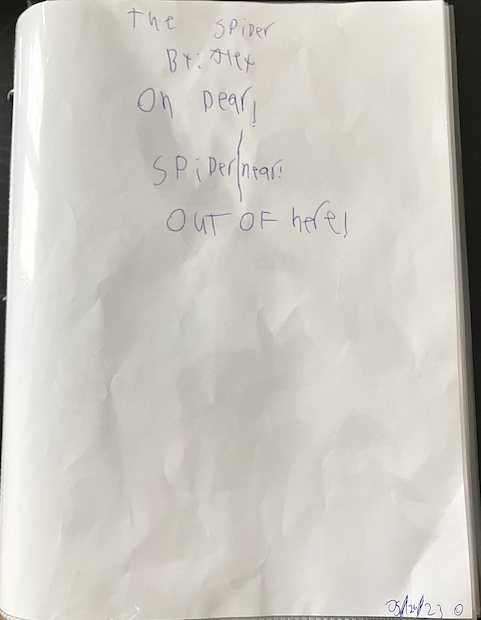 The Spider
By: Alex
Oh Dear!
Spider|near!
OUT OF here!
05/26/23